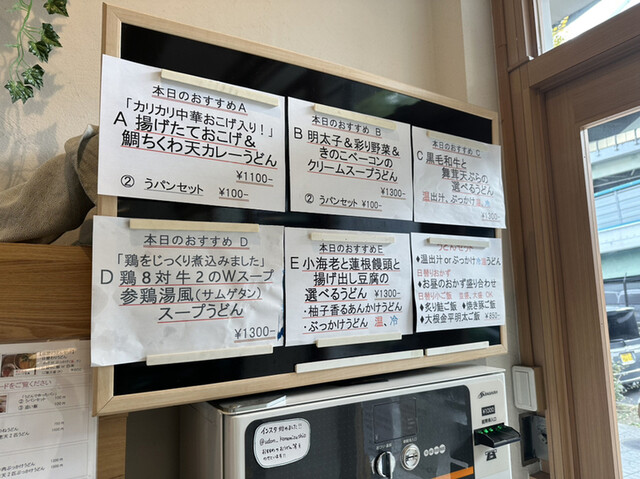 本日のおすすめA
「カリカリ中華おこげ入り!」
A 揚げたておこげ&
鯛ちくわ天カレーうどん
¥1100-
② うパンセット ¥100-
本日のおすすめ B
B 明太子&彩り野菜&
きのこベーコンの
クリームスープうどん
¥1300-
② うパンセット ¥100-
本日のおすすめ C
C 黒毛和牛と
舞茸天ぷらの
選べるうどん
温出汁、ぶっかけ温、冷
¥1300-
本日のおすすめ D
「鶏をじっくり煮込みました」
D 鶏8対牛2のWスープ
参鶏湯風(サムゲタン)
スープうどん
¥1300-
本日のおすすめE
E 小海老と蓮根饅頭と
揚げ出し豆腐の
選べるうどん ¥1300-
・柚子香るあんかけうどん
・ぶっかけうどん 温、冷
♦温出汁 or ぶっかけ冷温うどん
日替りおかず
♦お昼のおかず盛り合わせ
日替り小ご飯
♦炙り鮭ご飯 ♦焼き豚ご飯
♦大根金平明太ご飯 ¥850-
ードをご覧ください
インスタ始めました!!
¥1000